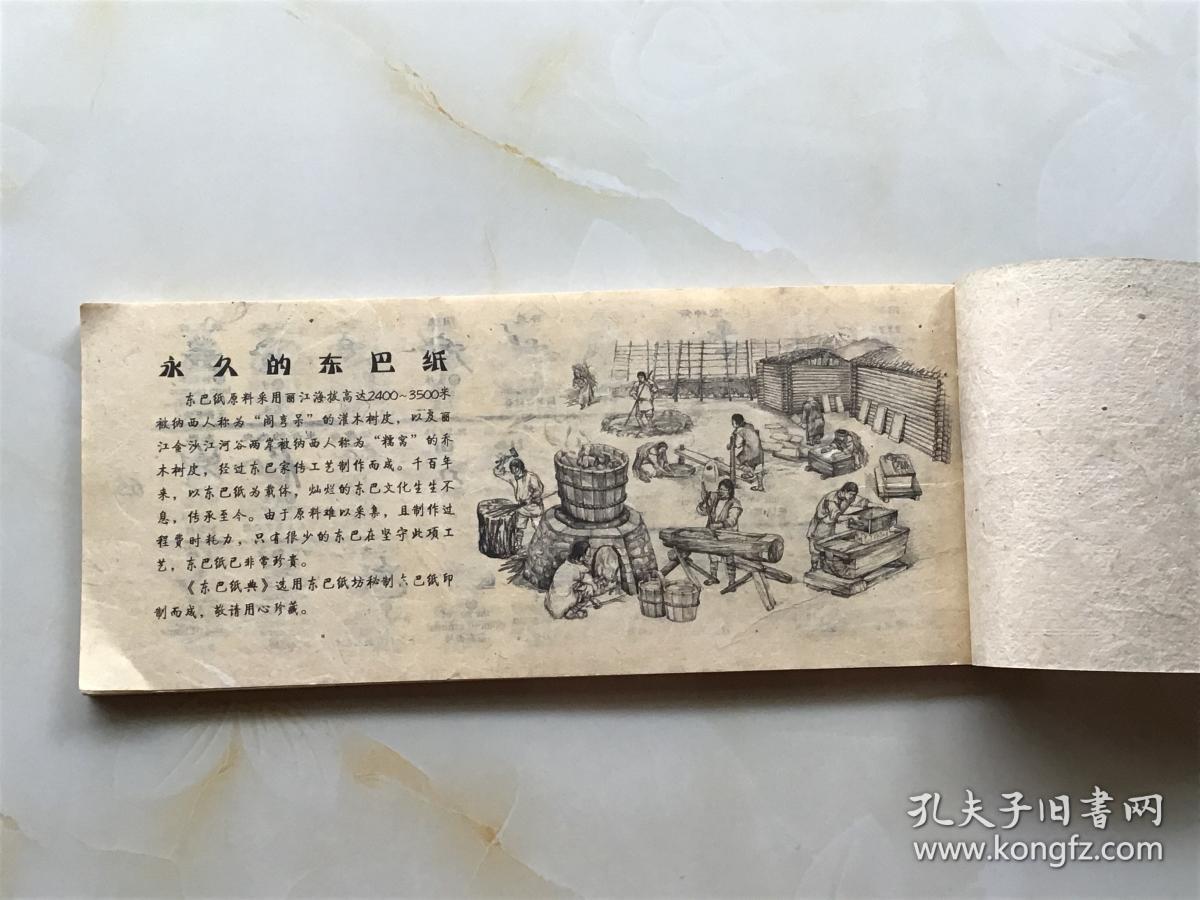 永久的东巴纸
东巴纸原料采用丽江海拔高达2400~3500米
被纳西人称为“阿亨呆”的灌木树皮，以及丽
江金沙江河谷两岸被纳西人称为“糯窝”的乔
木树皮，经过东巴家传工艺制作而成。千百年
来，以东巴纸为载体，灿烂的东巴文化生生不
息，传承至今。由于原料难以采集，且制作过
程费时耗力，只有很少的东巴在坚守此项工
艺，东巴纸已非常珍贵。
《东巴纸典》选用东巴纸坊秘制巴纸印
制而成，敬请用心珍藏。
孔夫子旧书网
www.kongfz.com